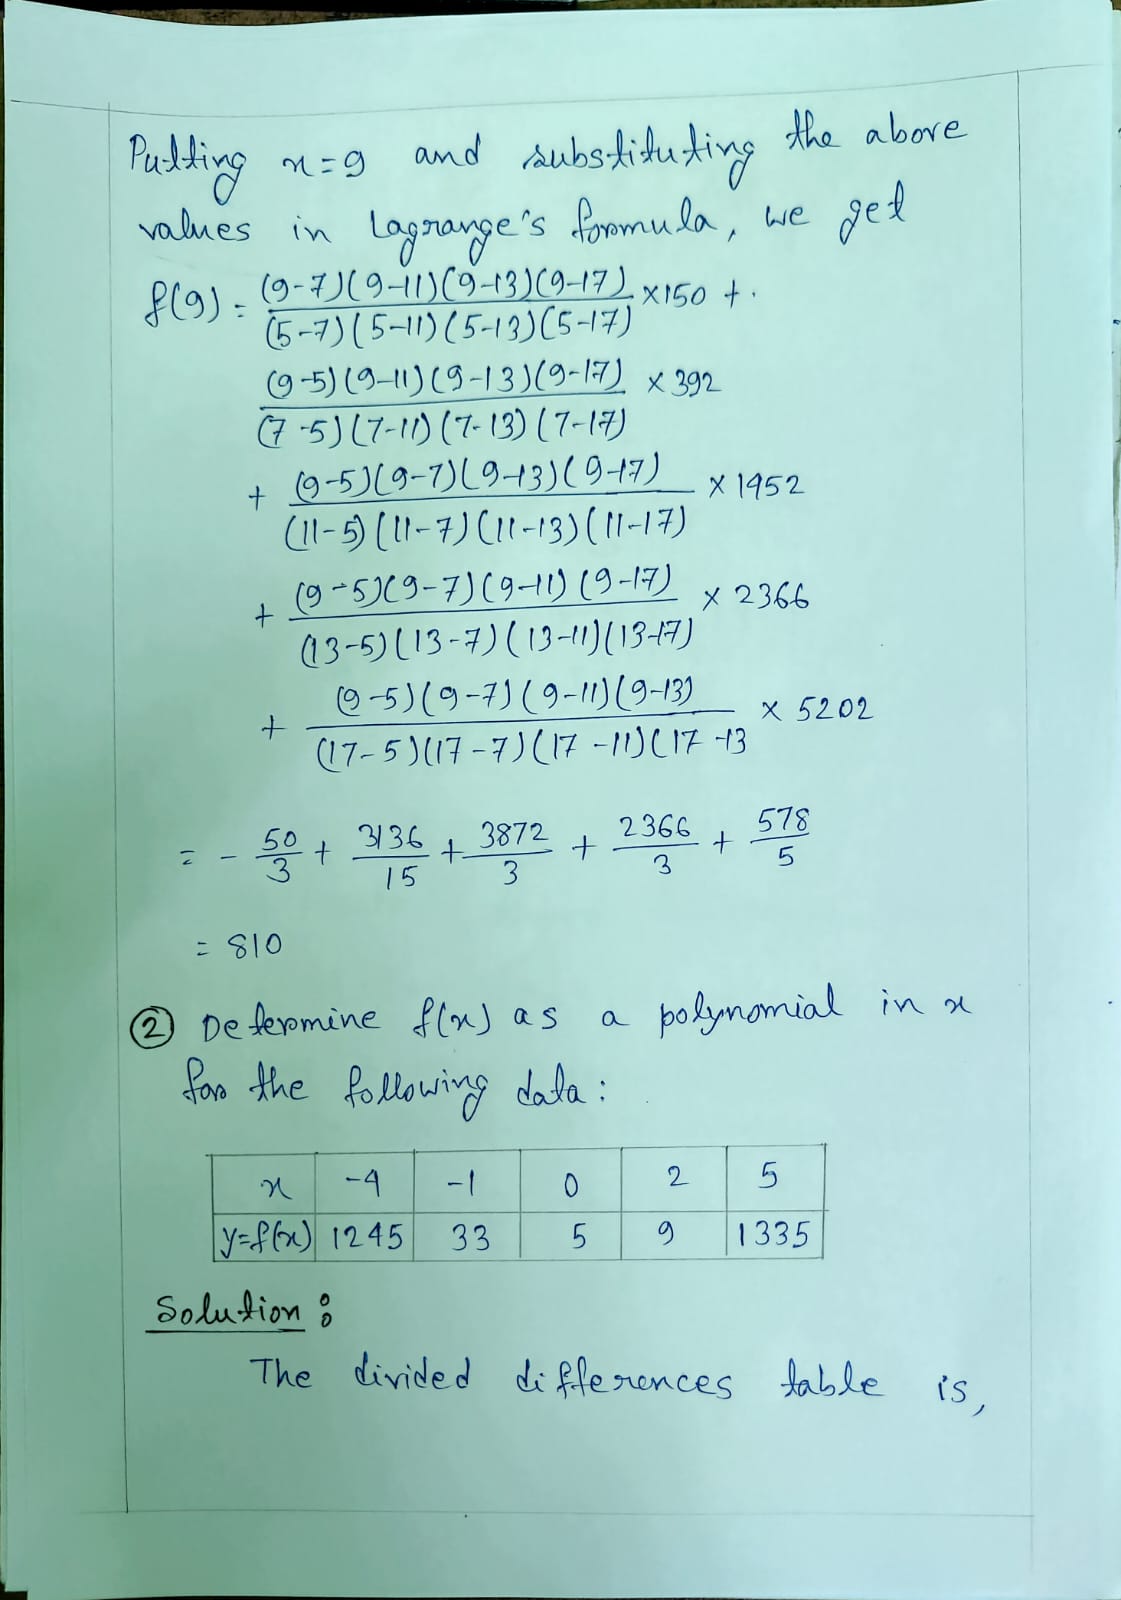 Putting x=9 and substituting the above
values in Lagrange's formula, we get
f(9) = (9-7)(9-11)(9-13)(9-17) / (5-7)(5-11)(5-13)(5-17) ×150 +
(9-5)(9-11)(9-13)(9-17) / (7-5)(7-11)(7-13)(7-17) × 392
+ (9-5)(9-7)(9-13)(9-17) / (11-5)(11-7)(11-13)(11-17) × 1952
+ (9-5)(9-7)(9-11)(9-17) / (13-5)(13-7)(13-11)(13-17) × 2366
+ (9-5)(9-7)(9-11)(9-13) / (17-5)(17-7)(17-11)(17-13 × 5202
= - 50/3 + 3136/15 + 3872/3 + 2366/3 + 578/5
= 810
② Determine f(x) as a polynomial in x
for the following data:
x -4 -1 0 2 5
y=f(x) 1245 33 5 9 1335
Solution:
The divided differences table is,